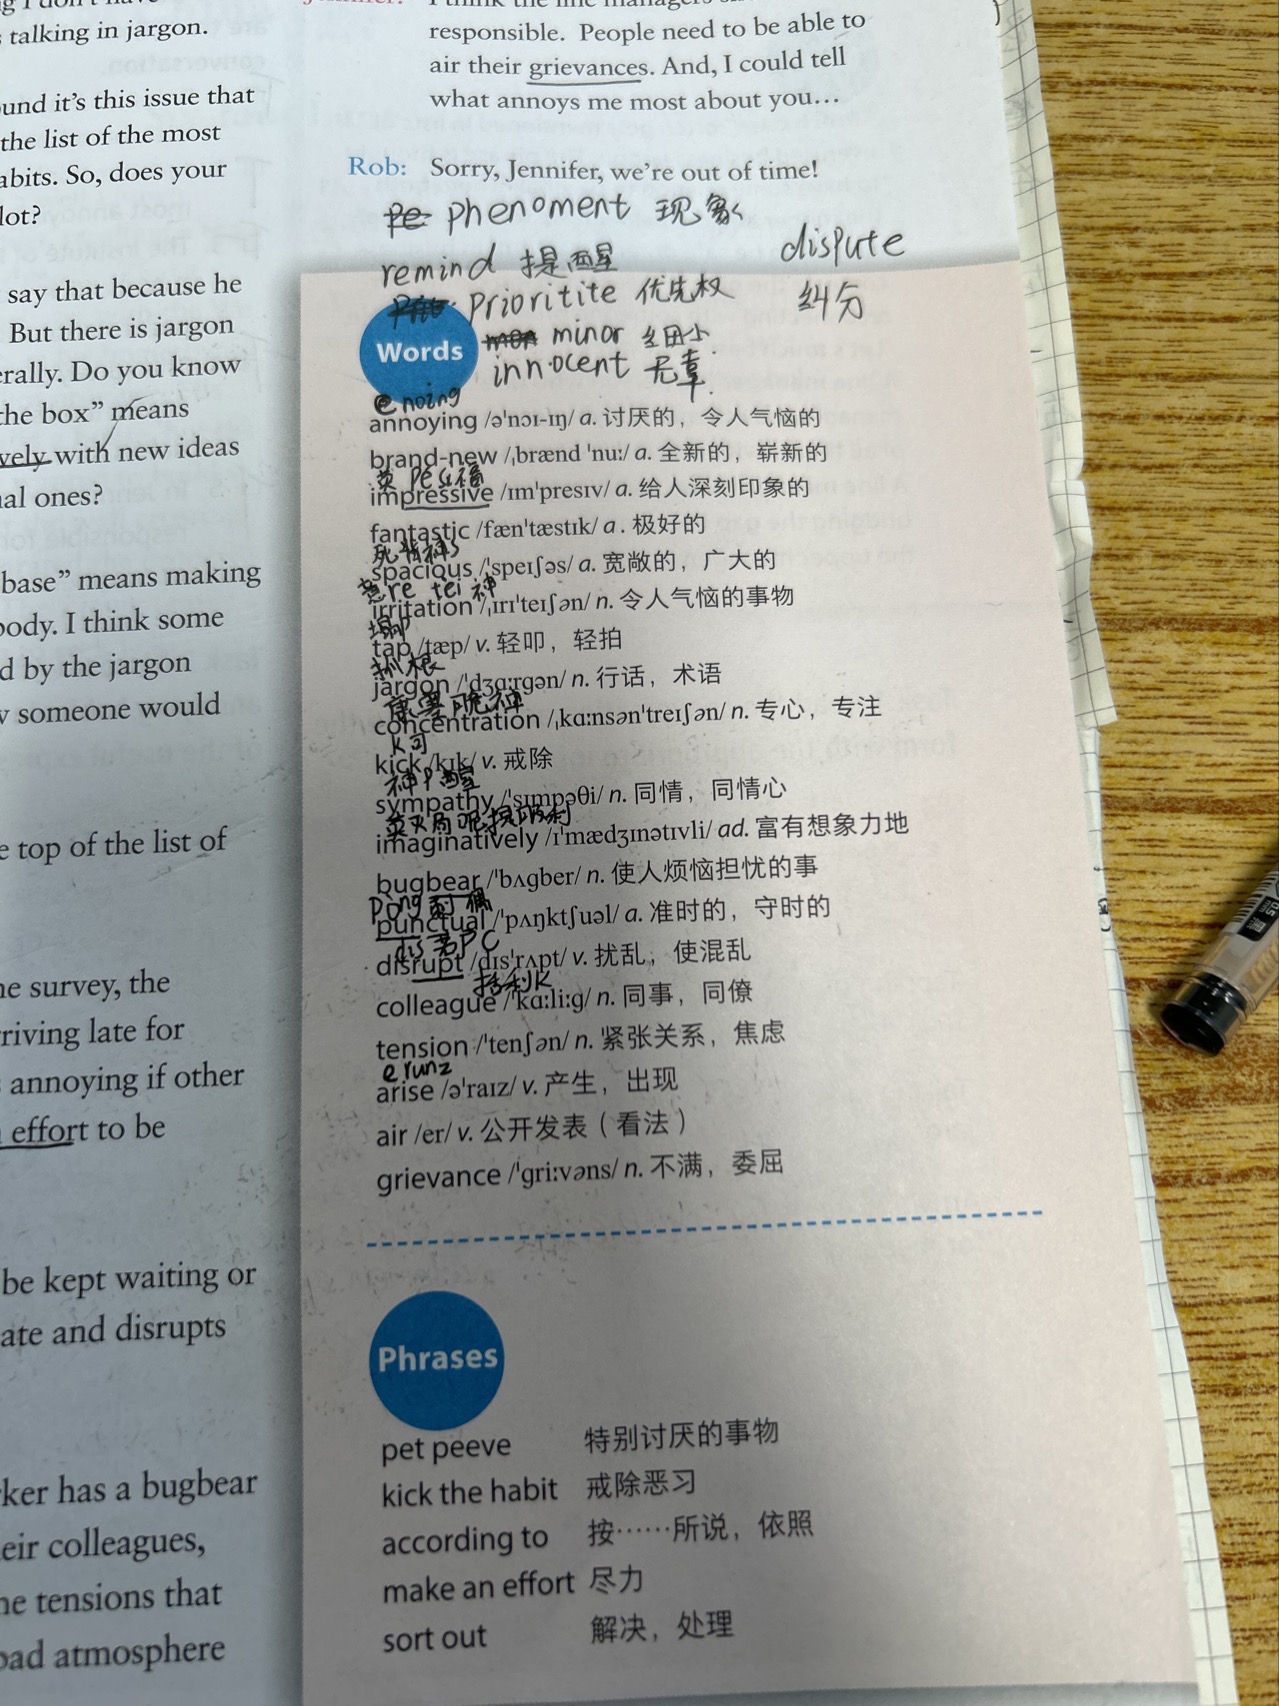 talking in jargon.
und it's this issue that
the list of the most
abits. So, does your
lot?
say that because he
But there is jargon
erally. Do you know
the box" means
vely with new ideas
nal ones?
base" means making
body. I think some
d by the jargon
someone would
e top of the list of
ne survey, the
rriving late for
annoying if other
effort to be
be kept waiting or
ate and disrupts
rker has a bugbear
eir colleagues,
he tensions that
oad atmosphere
responsible. People need to be able to
air their grievances. And, I could tell
what annoys me most about you…
Rob: Sorry, Jennifer, we're out of time!
phenoment 现象
remind 提醒
dispute
纠分
prioritite 优先权
minor 细小
innocent 无辜
Words
enoing
annoying /ə'nɔɪ-ɪŋ/ a. 讨厌的，令人气恼的
brand-new /ˌbrænd 'nuː/ a. 全新的，崭新的
impressive /ɪm'presɪv/ a. 给人深刻印象的
fantastic /fæn'tæstɪk/ a. 极好的
spacious /'speɪʃəs/ a. 宽敞的，广大的
意re tei 神
irritation /ˌɪrɪ'teɪʃən/ n. 令人气恼的事物
tap /tæp/ v. 轻叩，轻拍
jargon /'dʒɑːrgən/ n. 行话，术语
concentration /ˌkɑːnsən'treɪʃən/ n. 专心，专注
K可
kick /kɪk/ v. 戒除
神P醒
sympathy /'sɪmpəθi/ n. 同情，同情心
imaginatively /ɪ'mædʒɪnətɪvli/ ad. 富有想象力地
bugbear /'bʌgber/ n. 使人烦恼担忧的事
pong
punctual /'pʌŋktʃuəl/ a. 准时的，守时的
dis若PC
disrupt /dɪs'rʌpt/ v. 扰乱，使混乱
括利K
colleague /'kɑːliːg/ n. 同事，同僚
tension /'tenʃən/ n. 紧张关系，焦虑
erunz
arise /ə'raɪz/ v. 产生，出现
air /er/ v. 公开发表（看法）
grievance /'griːvəns/ n. 不满，委屈
Phrases
pet peeve 特别讨厌的事物
kick the habit 戒除恶习
according to 按……所说，依照
make an effort 尽力
sort out 解决，处理